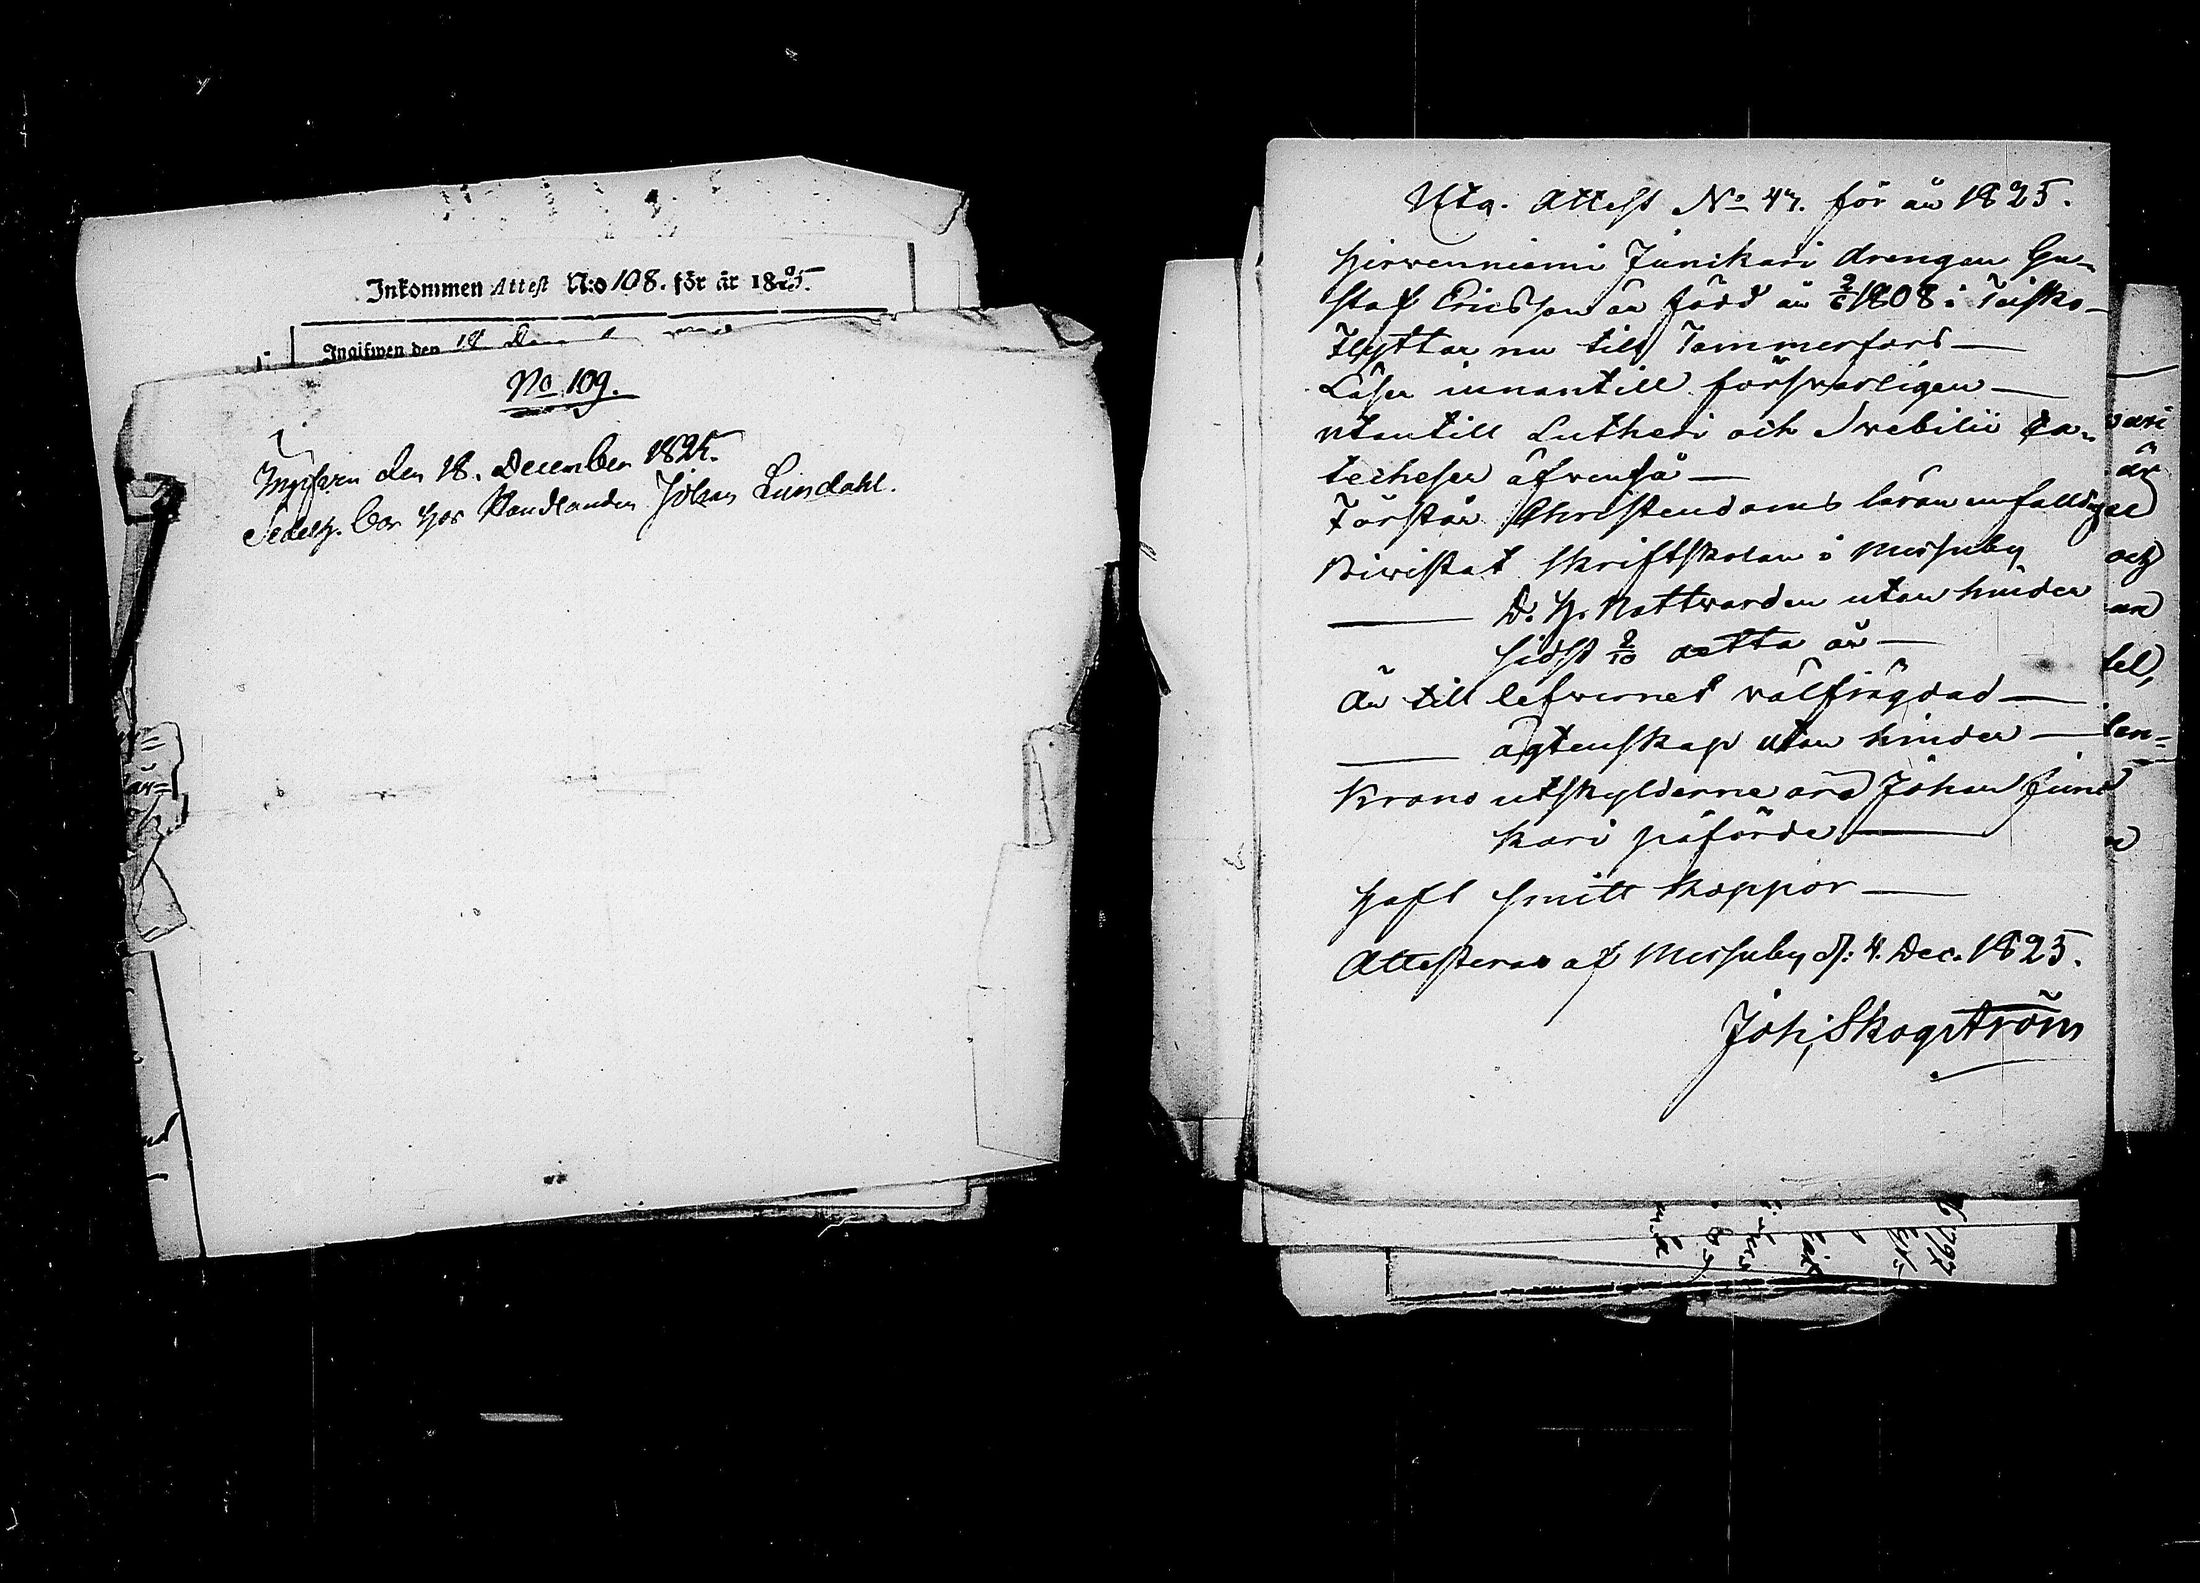 Inkommen Attest N:o 108. för år 1825.
Ingifwen den 18
No 109.
Ingifven den 18. December 1825.
Sedelh. bor hos Handlanden Johan Lundahl.
Utg. Attest No 47. för år 1825.
Hirvenniemi Junikari drengen Gu-
staf Ericsson är född år 2/6 1808 i Teisko
Flyttar nu till Tammerfors —
Läser innantill försvarligen —
utantill Lutheri och Svebilii Ca-
techeser äfvenså —
Förstår Christendoms läran enfalldig
Biwistat Skriftskolan i Messuby
— D. H. Nattvarden utan hinder
sidst 2/10 detta år —
Är till lefvernet välfrägdad —
— ägtenskap utan hinder —
Krono utskylderne äro Johan Juni
kari påförde —
Haft smitt koppor —
Attesteras af Messuby d: 4. Dec. 1825.
Joh. Skogström